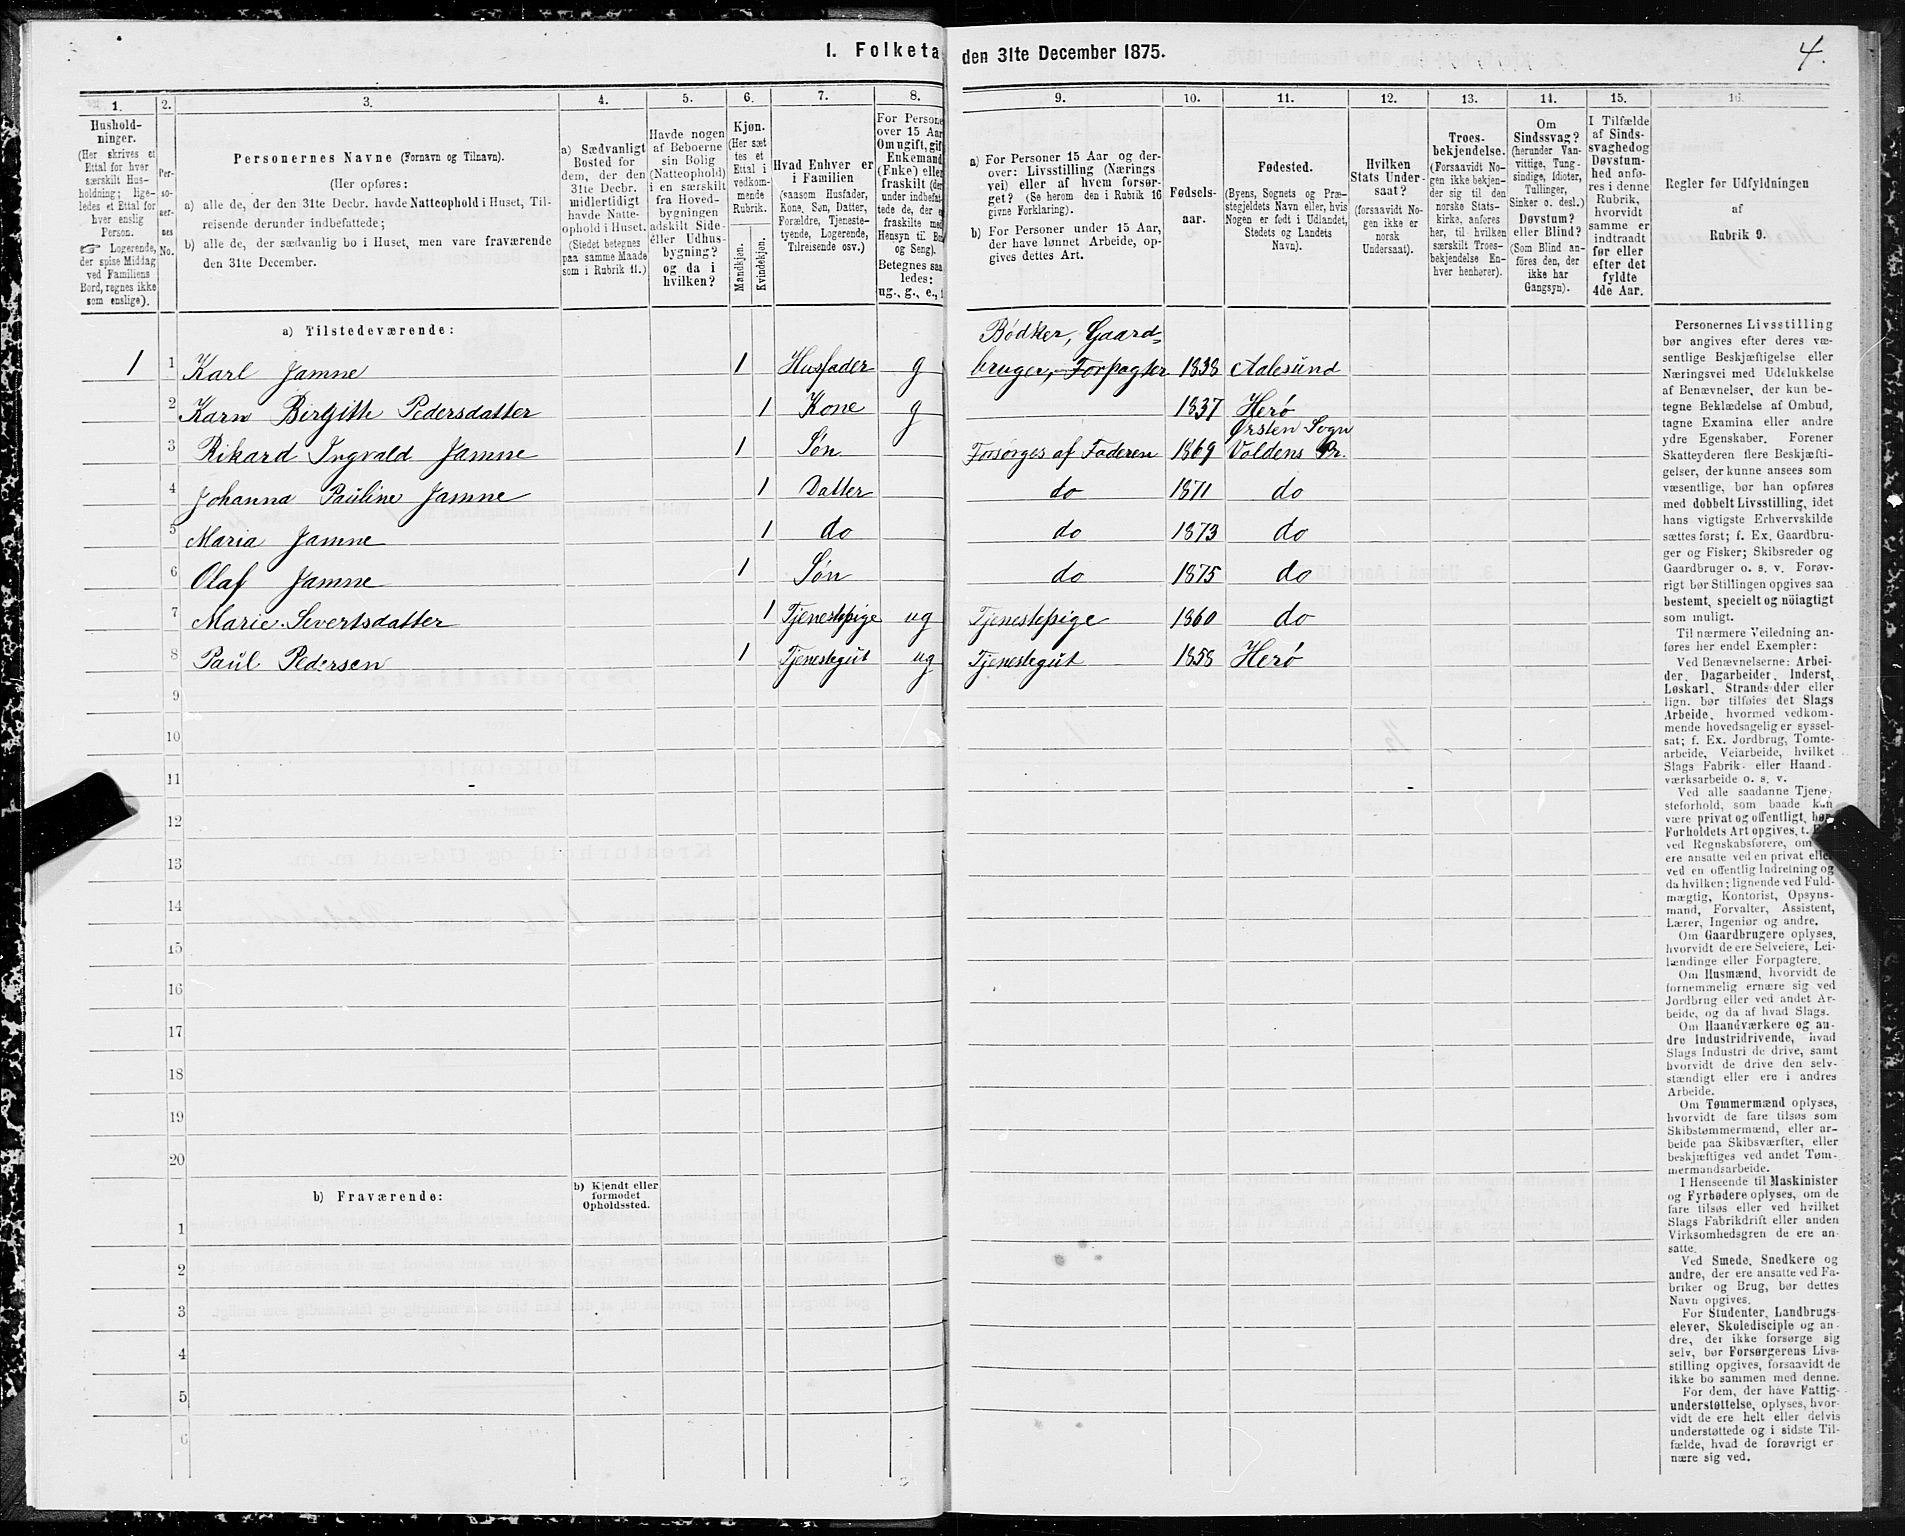 1. Folketa
den 31te December 1875.
4.
1.
2.
3.
4.
5.
6.
7.
8.
9.
10.
11.
12.
13.
14.
15.
16.
Hushold-
ninger.
(Her skrives et
Ettal for hver
særskilt Hus-
holdning; lige-
ledes et Ettal for
hver enslig
Person.
☞ Logerende,
der spise Middag
ved Familiens
Bord, regnes ikke
som enslige).
Per-
so-
ner-
nes
No.
Personernes Navne (Fornavn og Tilnavn).
(Her opføres:
a) alle de, der den 31te Decbr. havde Natteophold i Huset, Til-
reisende derunder indbefattede;
b) alle de, der sædvanlig bo i Huset, men vare fraværende
den 31te December.
a) Sædvanligt
Bosted for
dem, der den
31te Decbr.
midlertidigt
havde Natte-
ophold i Huset.
(Stedet betegnes
paa samme Maade
som i Rubrik 11.)
Havde nogen
af Beboerne
sin Bolig
(Natteophold)
i en særskilt
fra Hoved-
bygningen
adskilt Side-
eller Udhus-
bygning?
og da i
hvilken?
Kjøn.
(Her sæt
tes et
Ettal i
vedkom-
mende
Rubrik.
Mandkjøn.
Kvindekjøn.
Hvad Enhver er
i Familien
(saasom Husfader,
Kone, Søn, Datter,
Forældre, Tjeneste-
tyende, Logerende,
Tilreisende osv.)
For Persone
over 15 Aar
Om ugift, gif
Enkemand
(Enke) eller
fraskilt (der
under indbefat-
tede de, der e
fraskilte med
Hensyn til Bo
og Seng).
Betegnes saa
ledes:
ug., g., e., f
a) For Personer 15 Aar og der-
over: Livsstilling (Nærings
vei) eller af hvem forsør-
get? (Se herom den i Rubrik 16
givne Forklaring).
b) For Personer under 15 Aar,
der have lønnet Arbeide, op-
gives dettes Art.
Fødsels-
aar.
Fødested.
(Byens, Sognets og Præ-
stegjeldets Navn eller, hvis
Nogen er født i Udlandet,
Stedets og Landets
Navn).
Hvilken
Stats Under-
saat?
(forsaavidt No-
gen ikke er
norsk
Undersaat).
Troes-
bekjendelse.
(Forsaavidt No-
gen ikke bekjen-
der sig til den
norske Stats-
kirke, anføres
her, til hvilken
særskilt Troes-
bekjendelse En-
hver henhører).
Om
Sindssvag?
(herunder Van-
vittige, Tung-
sindige, Idioter,
Tullinger,
Sinker o. desl.)
Døvstum?
eller Blind?
(Som Blind an-
føres den, der
ikke har
Gangsyn).
I Tilfælde
af Sinds-
svaghed og
Døvstum-
hed anfø-
res i denne
Rubrik,
hvorvidt
samme er
indtraadt
før eller
efter det
fyldte
4de Aar.
Regler for Udfyldningen
af
Rubrik 9.
a) Tilstedeværende:
Bødker, Gaard-
1 1 Karl Jamne 1 Husfader g bruger, Forpagter 1838 Aalesund
2 Karn Birgith Pedersdatter 1 Kone g 1837 Herø
Ørsten Sogn
3 Rikard Ingvald Jamne 1 Søn Forsørges af Faderen 1869 Voldens Pr.
4 Johanna Pauline Jamne 1 Datter do 1871 do
5 Maria Jamne 1 do do 1873 do
6 Olaf Jamne 1 Søn do 1875 do
7 Marie Severtsdatter 1 Tjenestepige ug Tjenestepige 1860 do
8 Paul Pedersen 1 Tjenestegut ug Tjenestegut 1858 Herø
9
10
11
12
13
14
15
16
17
18
19
20
b) Fraværende:
b) Kjendt eller
formodet
Opholdssted.
1
2
3
4
5
6
Personernes Livsstilling
bør angives efter deres væ-
sentlige Beskjæftigelse eller
Næringsvei med Udelukkelse
af Benævnelser, der kun be-
tegne Beklædelse af Ombud,
tagne Examina eller andre
ydre Egenskaber. Forener
Skatteyderen flere Beskjæfti-
gelser, der kunne ansees som
væsentlige, bør han opføres
med dobbelt Livsstilling, idet
hans vigtigste Erhvervskilde
sættes først; f. Ex. Gaardbru-
ger og Fisker; Skibsreder og
Gaardbruger o. s. v. Forøv-
rigt bør Stillingen opgives saa
bestemt, specielt og nøiagtigt
som muligt.
Til nærmere Veiledning an-
føres her endel Exempler:
Ved Benævnelserne: Arbei-
der, Dagarbeider, Inderst,
Løskarl, Strandsidder eller
lign. bør tilføies det Slags
Arbeide, hvormed vedkom-
mende hovedsagelig er syssel-
sat; f. Ex. Jordbrug, Tomte-
arbeide, Veiarbeide, hvilket
Slags Fabrik- eller Haand-
værksarbeide o. s. v.
Ved alle saadanne Tjene-
steforhold, som baade kan
være privat og offentligt, bør
Forholdets Art opgives, t.
ved Regnskabsførere, om
ere ansatte ved en privat eller
ved en offentlig Indretning og
da hvilken; lignende ved Fuld-
mægtig, Kontorist, Opsyns-
mand, Forvalter, Assistent,
Lærer, Ingeniør og andre.
Om Gaardbrugere oplyses,
hvorvidt de ere Selveiere, Lei-
lændinge eller Forpagtere.
Om Husmænd, hvorvidt de
fornemmelig ernære sig ved
Jordbrug eller ved andet Ar-
beide, og da af hvad Slags.
Om Haandværkere og an-
dre Industridrivende, hvad
Slags Industri de drive, samt
hvorvidt de drive den selv-
stændigt eller ere i andres
Arbeide.
Om Tømmermænd oplyses,
hvorvidt de fare tilsøs som
Skibstømmermænd, eller ar-
beide paa Skibsværfter, eller
beskjæftiges ved andet Tøm-
mermandsarbeide.
I Henseende til Maskinister
og Fyrbødere oplyses, om de
fare tilsøs eller ved hvilket
Slags Fabrikdrift eller anden
Virksomhedsgren de ere an-
satte.
Ved Smede, Snedkere og
andre, der ere ansatte ved Fa-
briker og Brug, bør dettes
Navn opgives.
For Studenter, Landbrugs-
elever, Skoledisciple og an-
dre, der ikke forsørge sig
selv, bør Forsørgerens Livs-
stilling opgives, forsaavidt de
ikke bo sammen med denne.
For dem, der have Fattig-
understøttelse, oplyses, hvor-
vidt de ere helt eller delvis
understøttede og i sidste Til-
fælde, hvad de forøvrigt er
nære sig ved.